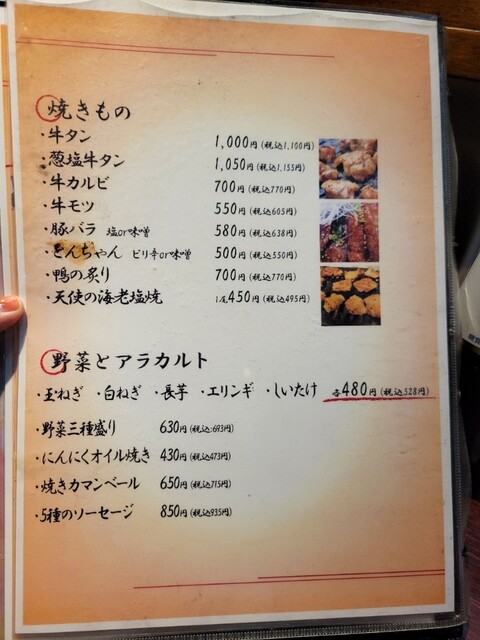 焼きもの
・牛タン 1,000円(税込1,100円)
・葱塩牛タン 1,050円(税込1,155円)
・牛カルビ 700円(税込770円)
・牛モツ 550円(税込605円)
・豚バラ 塩or味噌 580円(税込638円)
・とんちゃん ピリ辛or味噌 500円(税込550円)
・鴨の炙り 700円(税込770円)
・天使の海老塩焼 1尾450円(税込495円)
野菜とアラカルト
・玉ねぎ ・白ねぎ ・長芋 ・エリンギ ・しいたけ 各480円(税込528円)
・野菜三種盛り 630円(税込693円)
・にんにくオイル焼き 430円(税込473円)
・焼きカマンベール 650円(税込715円)
・5種のソーセージ 850円(税込935円)